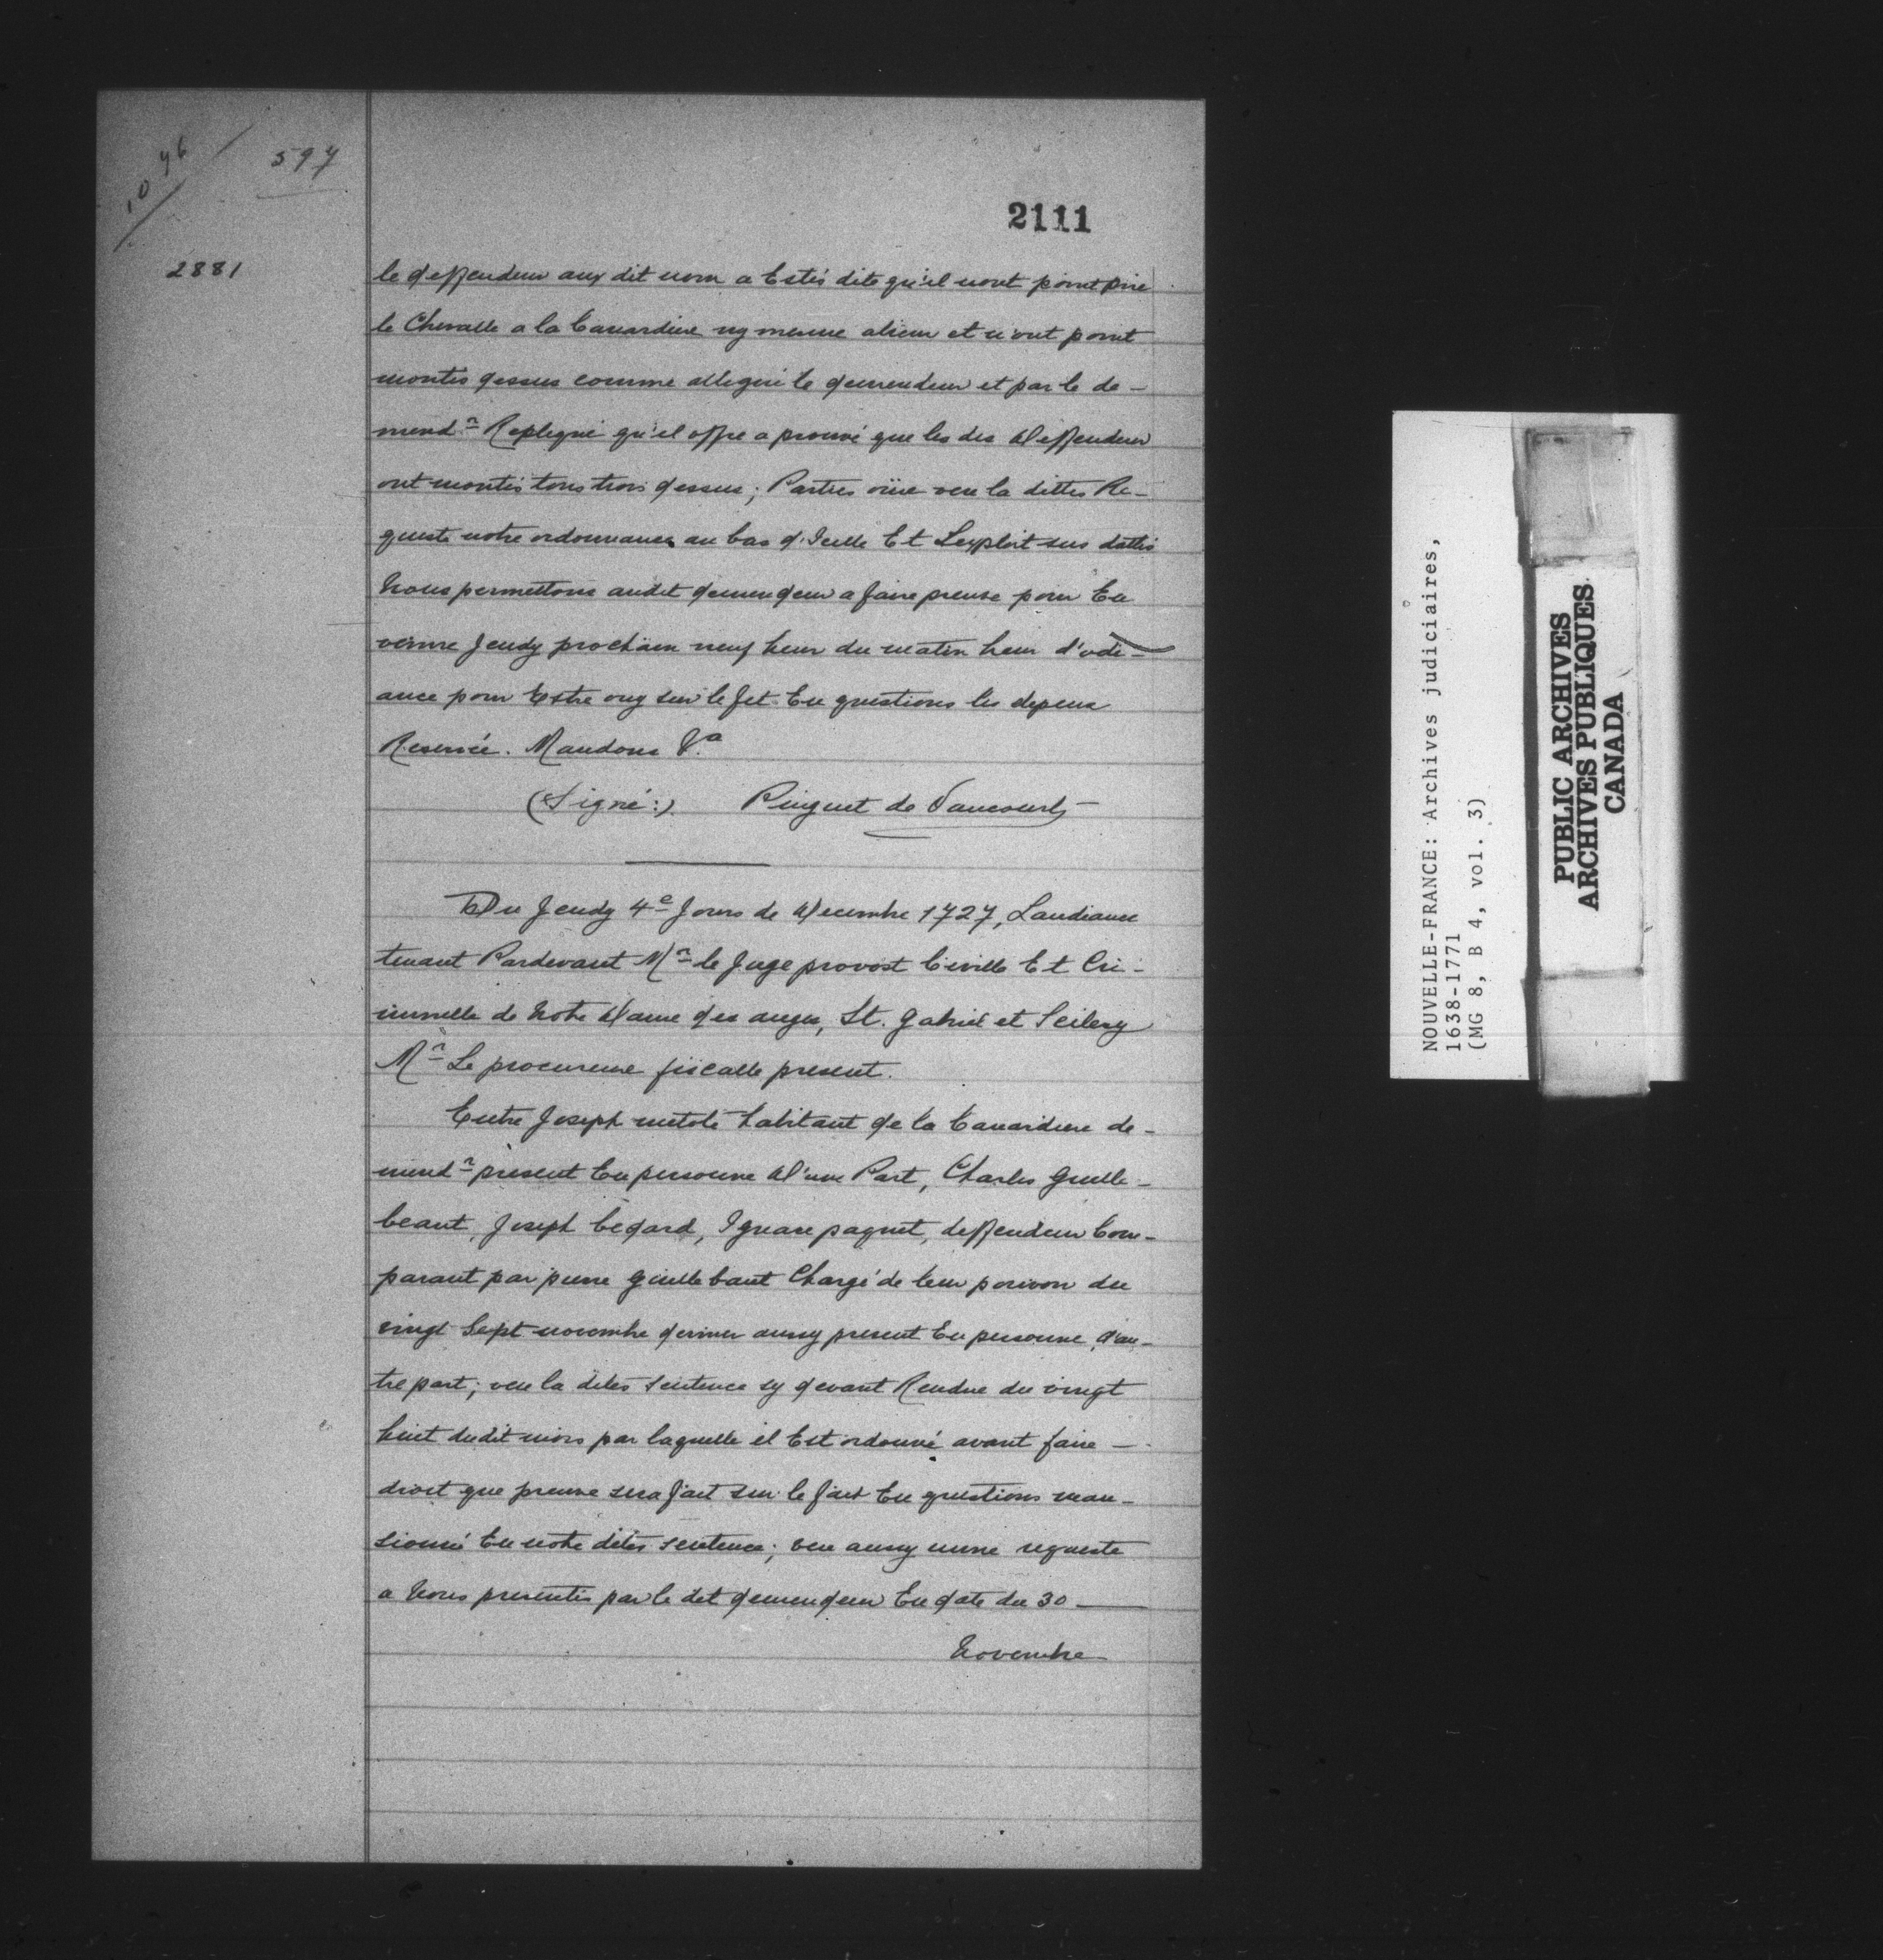 1046
597
2111
2881
le deffendeur aux dit nom a Estés dite qu'il nont point prie
le Chevalle a la Canardiere ny mesme alieur et n'ont point
montés dessus comme allegué le demendeur et par le de-
mendr Replegué qu'il offre a prouvé que les des Deffendeur
ont montés tous trois dessus; Parties oüie veu la dittes Re-
queste notre ordonnance au bas d'Icelle Et Lexploit sus dattés
Nous permettons audit demendeur a faire preuve pour En
venire Jeudy prochain neuf heur du matin heur d'odi-
ance pour Estre ouy sur le fet En questions les depens
Reservée. Mandons &a
(Signé:) Pinguet de Vaucourt
Du Jeudy 4e Jours de Decembre 1727, Laudiance
tenant Pardevant Mr le Juge provost Civille Et Cri-
iminelle de Notre Dame des anges, St. gabriel et Scilery
Mr Le procureure fiscalle present.
Entre Joseph metote habitant de la Canardiere de-
mendr present En personne D'une Part, Charles guille-
beaut, Joseph begard, Ignace paquet, deffendeur Com-
parant par pierre guillebaut Chargé de leur pouvoir du
vingt Sept novembre dernier aussy present En personne d'au-
tre part; veu la dites sentence cy devant Rendue du vingt
huit dudit mois par laquelle il Est ordonné avant faire
droit que preuve sera fait sur le fait En questions man-
sionné En notre dites sentence; veu aussy unne requeste
a Nous presentés par le dit demendeur En date du 30
Novembre
NOUVELLE-FRANCE: Archives judiciaires,
1638-1771
(MG 8, B 4, vol. 3)
PUBLIC ARCHIVES
ARCHIVES PUBLIQUES
CANADA